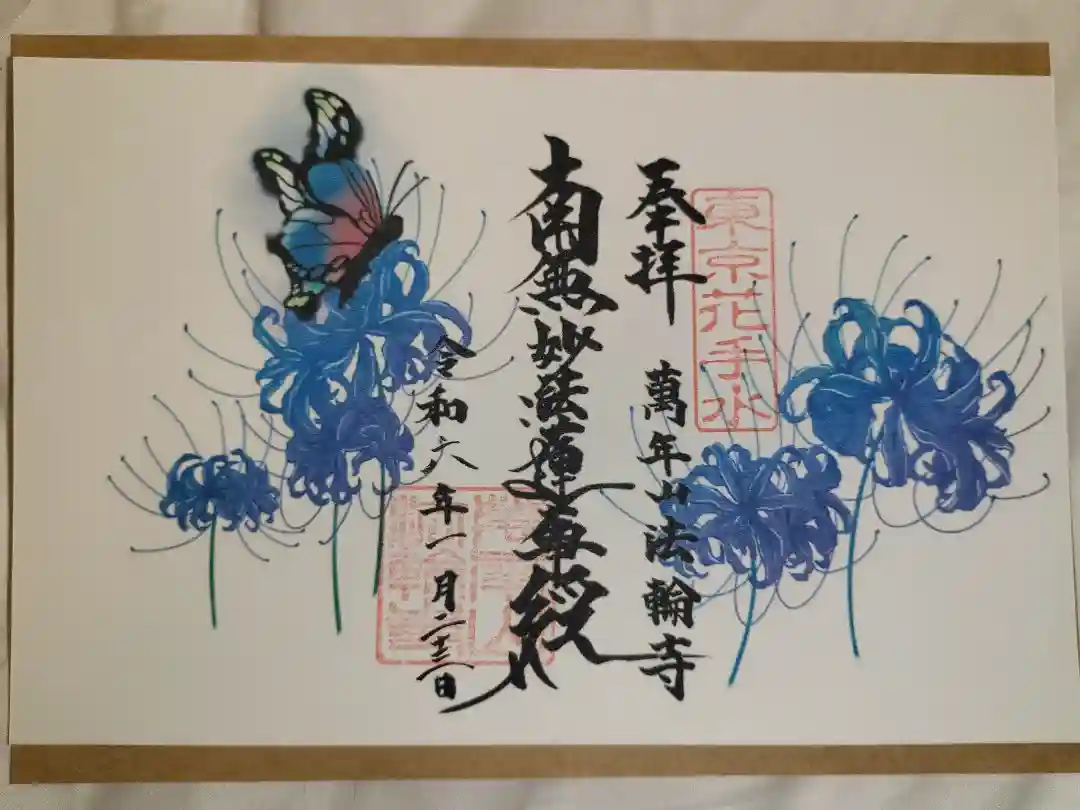 東京花手水
奉拝 萬年山法輪寺
南無妙法蓮華経
令和六年一月二十三日